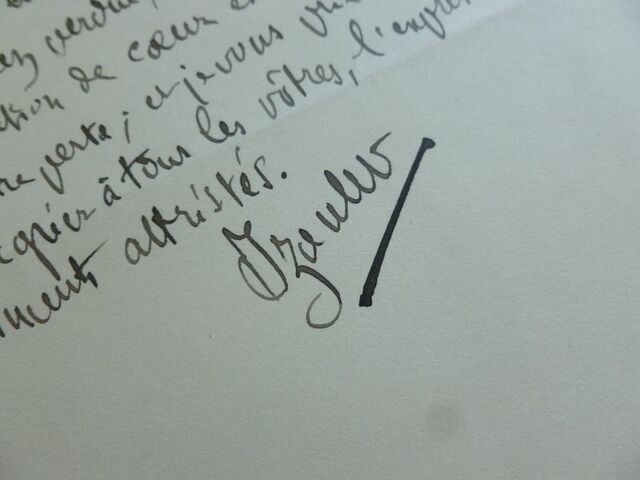 verdu
tion de cœur e
re perte; et je vous pri
à tous les vôtres, l'expr
iments attristés.
Izoulet